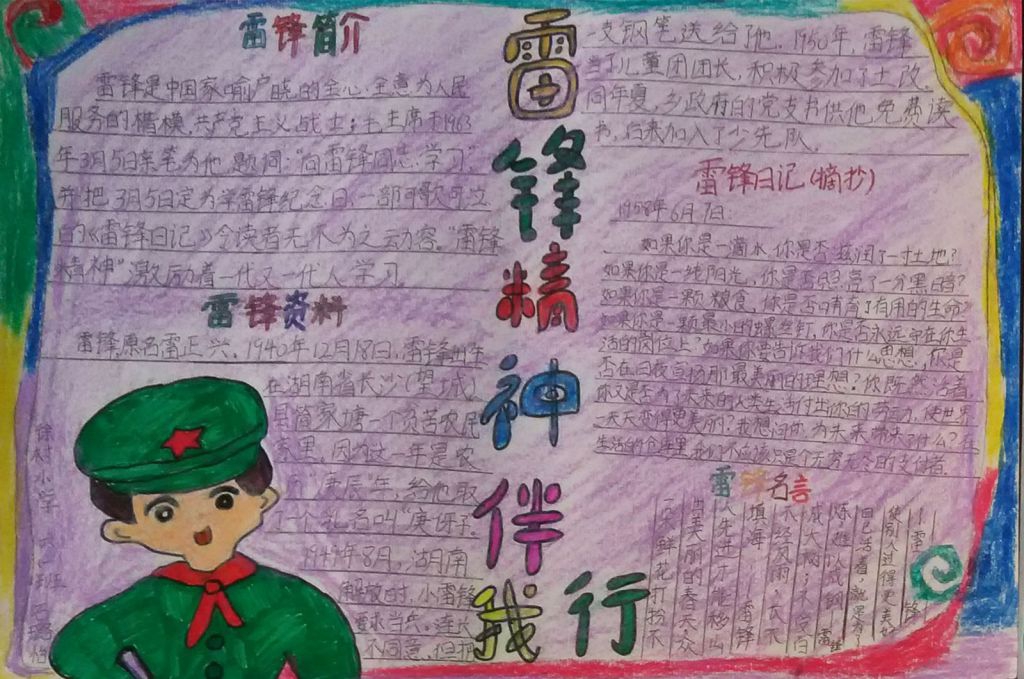 雷锋精神伴我行
雷锋简介
雷锋是中国家喻户晓的全心全意为人民
服务的楷模,共产党主义战士;毛主席于1963
年3月5日亲笔为他题词:“向雷锋同志学习”
并把3月5日定为学雷锋纪念日,一部可歌可泣
的《雷锋日记》令读者无不为之动容。“雷锋
精神”激励着一代又一代人学习
雷锋资料
雷锋,原名雷正兴,1940年12月18日,雷锋出生
在湖南省长沙(望城)
县简家塘一个贫苦农民
家里,因为这一年是农
庚辰年,给他取
了一个乳名叫“庚伢子。
1949年8月,湖南
解放时,小雷锋
要求当兵。连长
不同意,但把
一支钢笔送给了他。1950年,雷锋
当了儿童团团长,积极参加了土改。
同年夏,乡政府的党支书供他免费读
书,后来加入了少先队。
雷锋日记(摘抄)
1958年6月7日:
如果你是一滴水,你是否滋润了一寸土地?
如果你是一线阳光,你是否照亮了一分黑暗?
如果你是一颗粮食,你是否哺育了有用的生命?
如果你是一颗最小的螺丝钉,你是否永远守在你生
活的岗位上?如果你要告诉我们什么思想,你是
否在日夜宣扬那最美丽的理想?你既然活着,
你又是否为了未来的人类生活付出你的劳动,使世界
一天天变得更美丽?我想问你,为未来带来了什么?在
生活的仓库里,我们不应该只是个无穷无尽的支付者
雷锋名言
使别人过得更美好
自己活着,就是为了
炼难以成钢 雷锋
成大树;不受百
不经风雨,长不
填海 雷锋
人先进才能移山
出美丽的春天,众
一朵鲜花打扮不
徐村小学